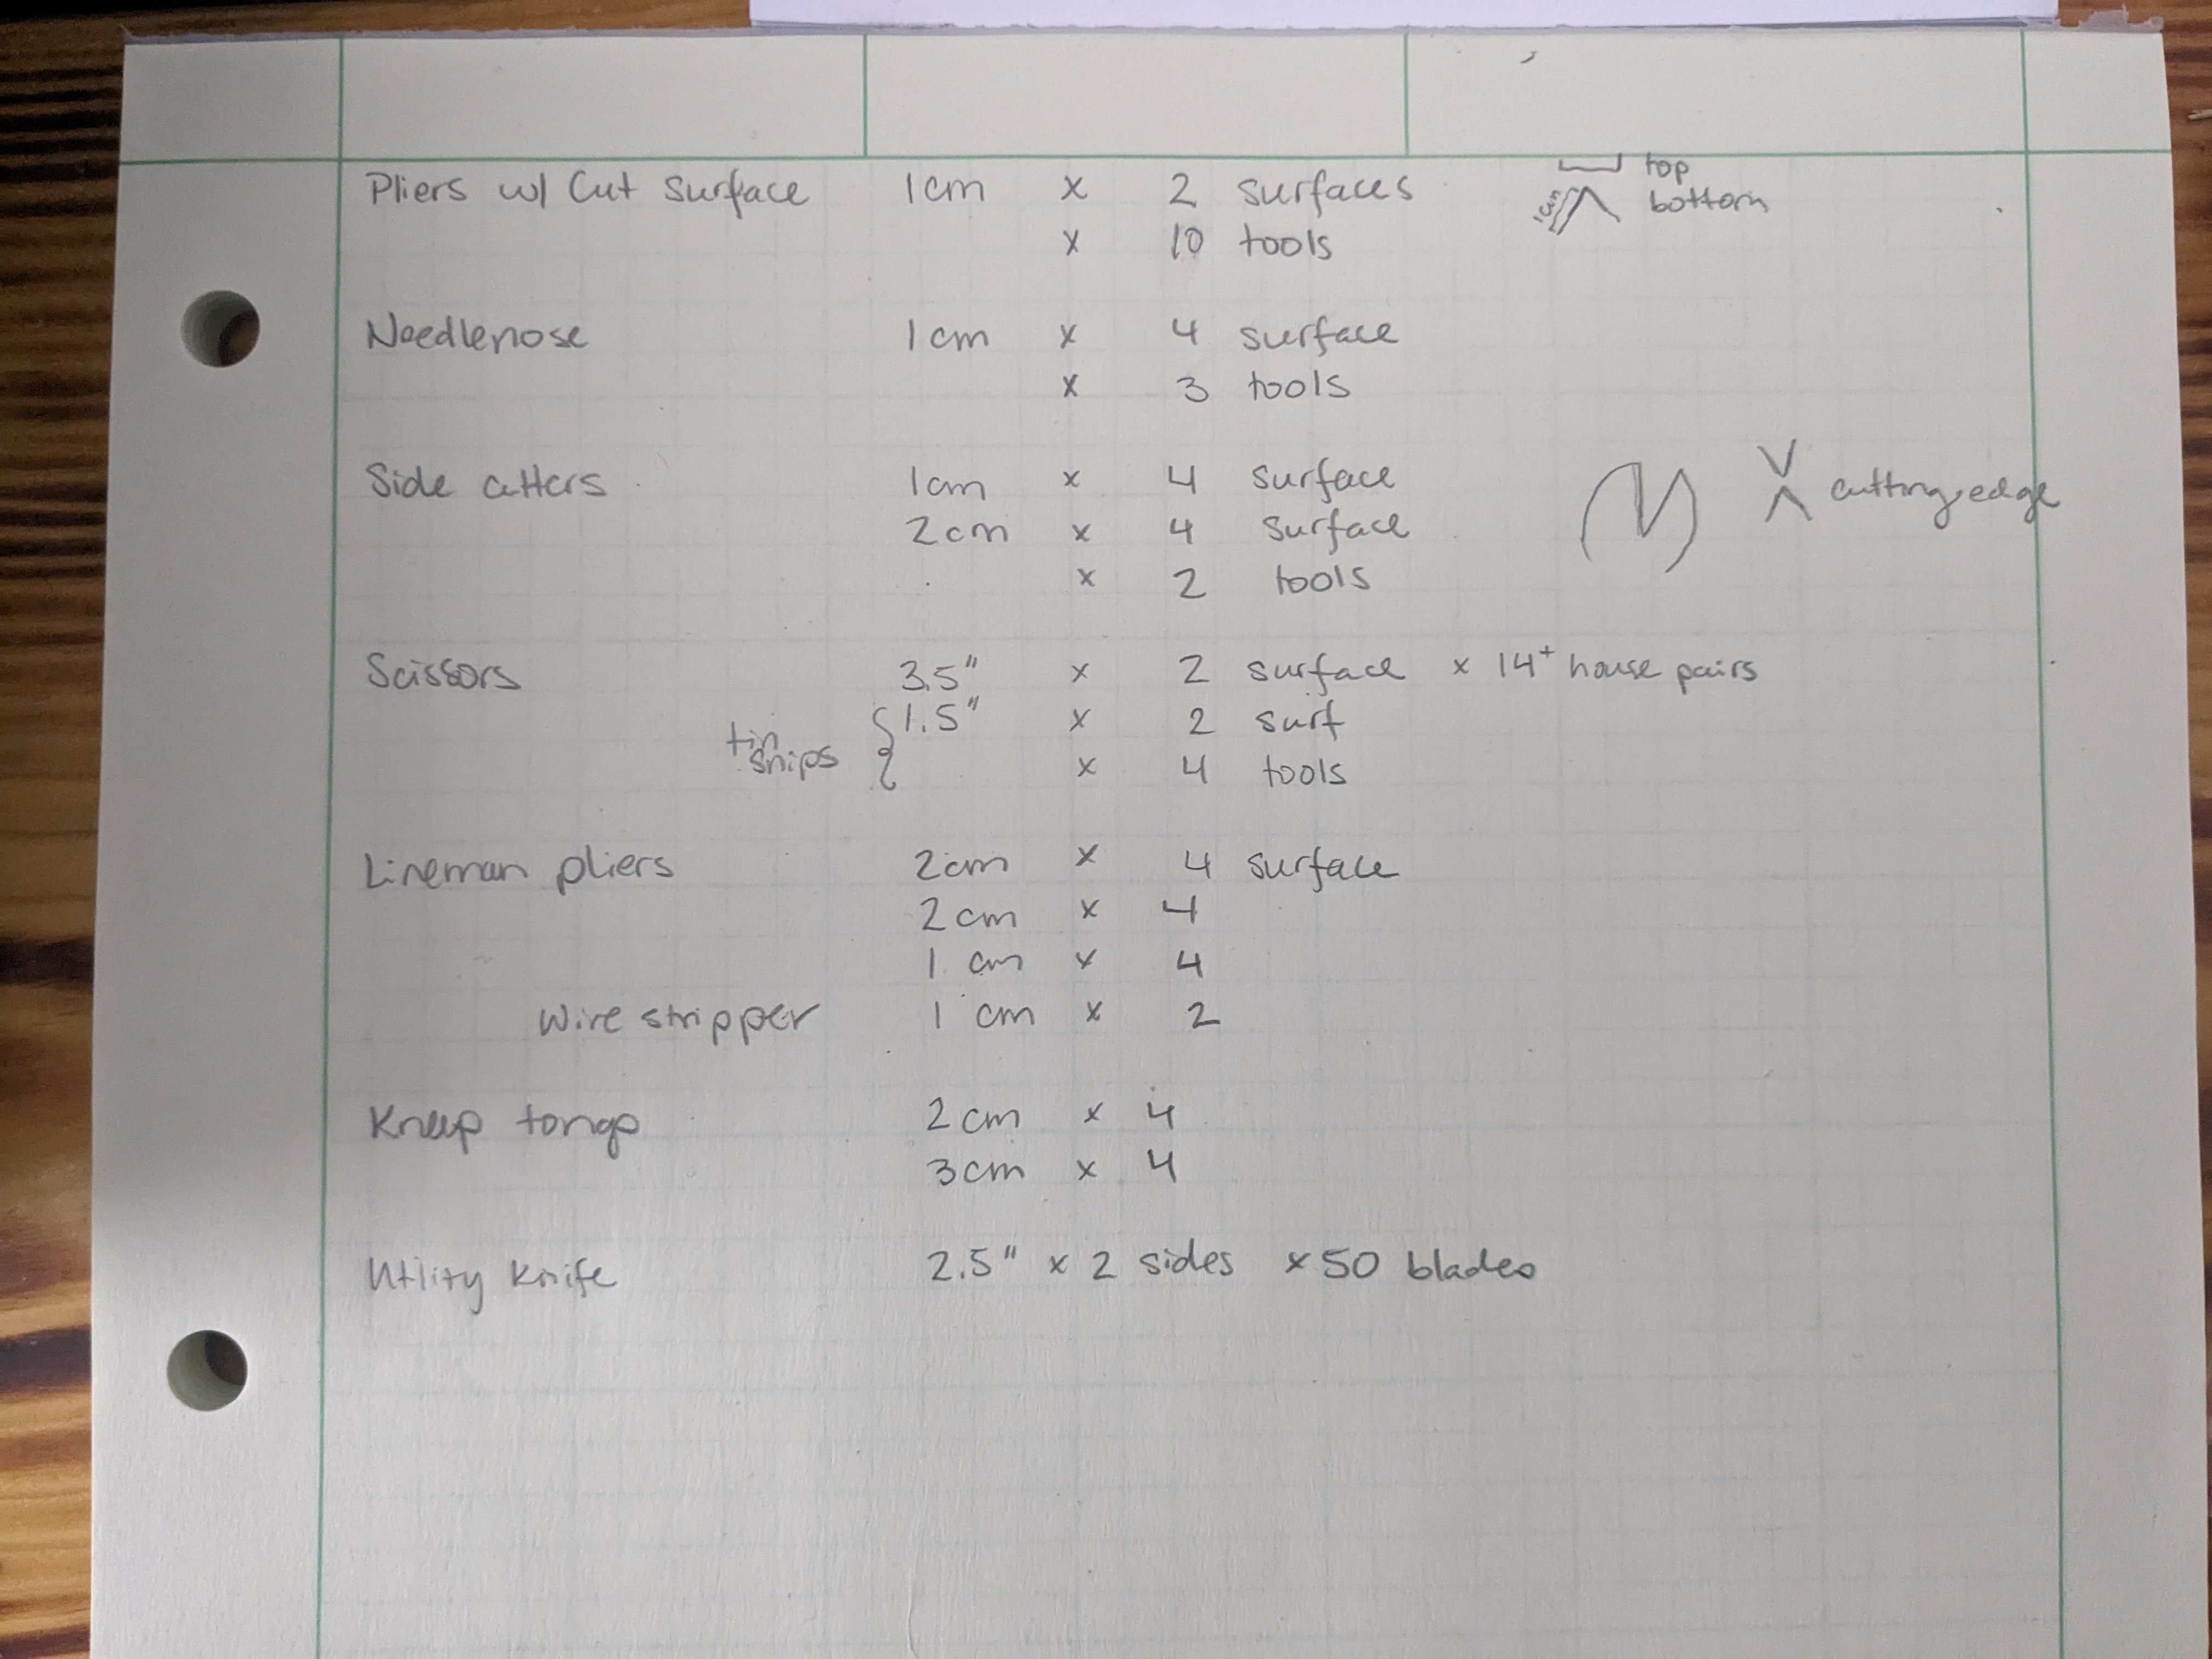 Pliers w/ Cut surface 1cm x 2 surfaces top
1cm bottom
x 10 tools
Needlenose 1cm x 4 surface
x 3 tools
Side cutters 1cm x 4 surface cutting edge
2cm x 4 surface
x 2 tools
Scissors 3.5" x 2 surface x 14+ house pairs
tin snips { 1.5" x 2 surf
x 4 tools
Lineman pliers 2cm x 4 surface
2cm x 4
1 cm x 4
Wire stripper 1 cm x 2
Knip tongs 2cm x 4
3cm x 4
Utility Knife 2.5" x 2 sides x 50 blades